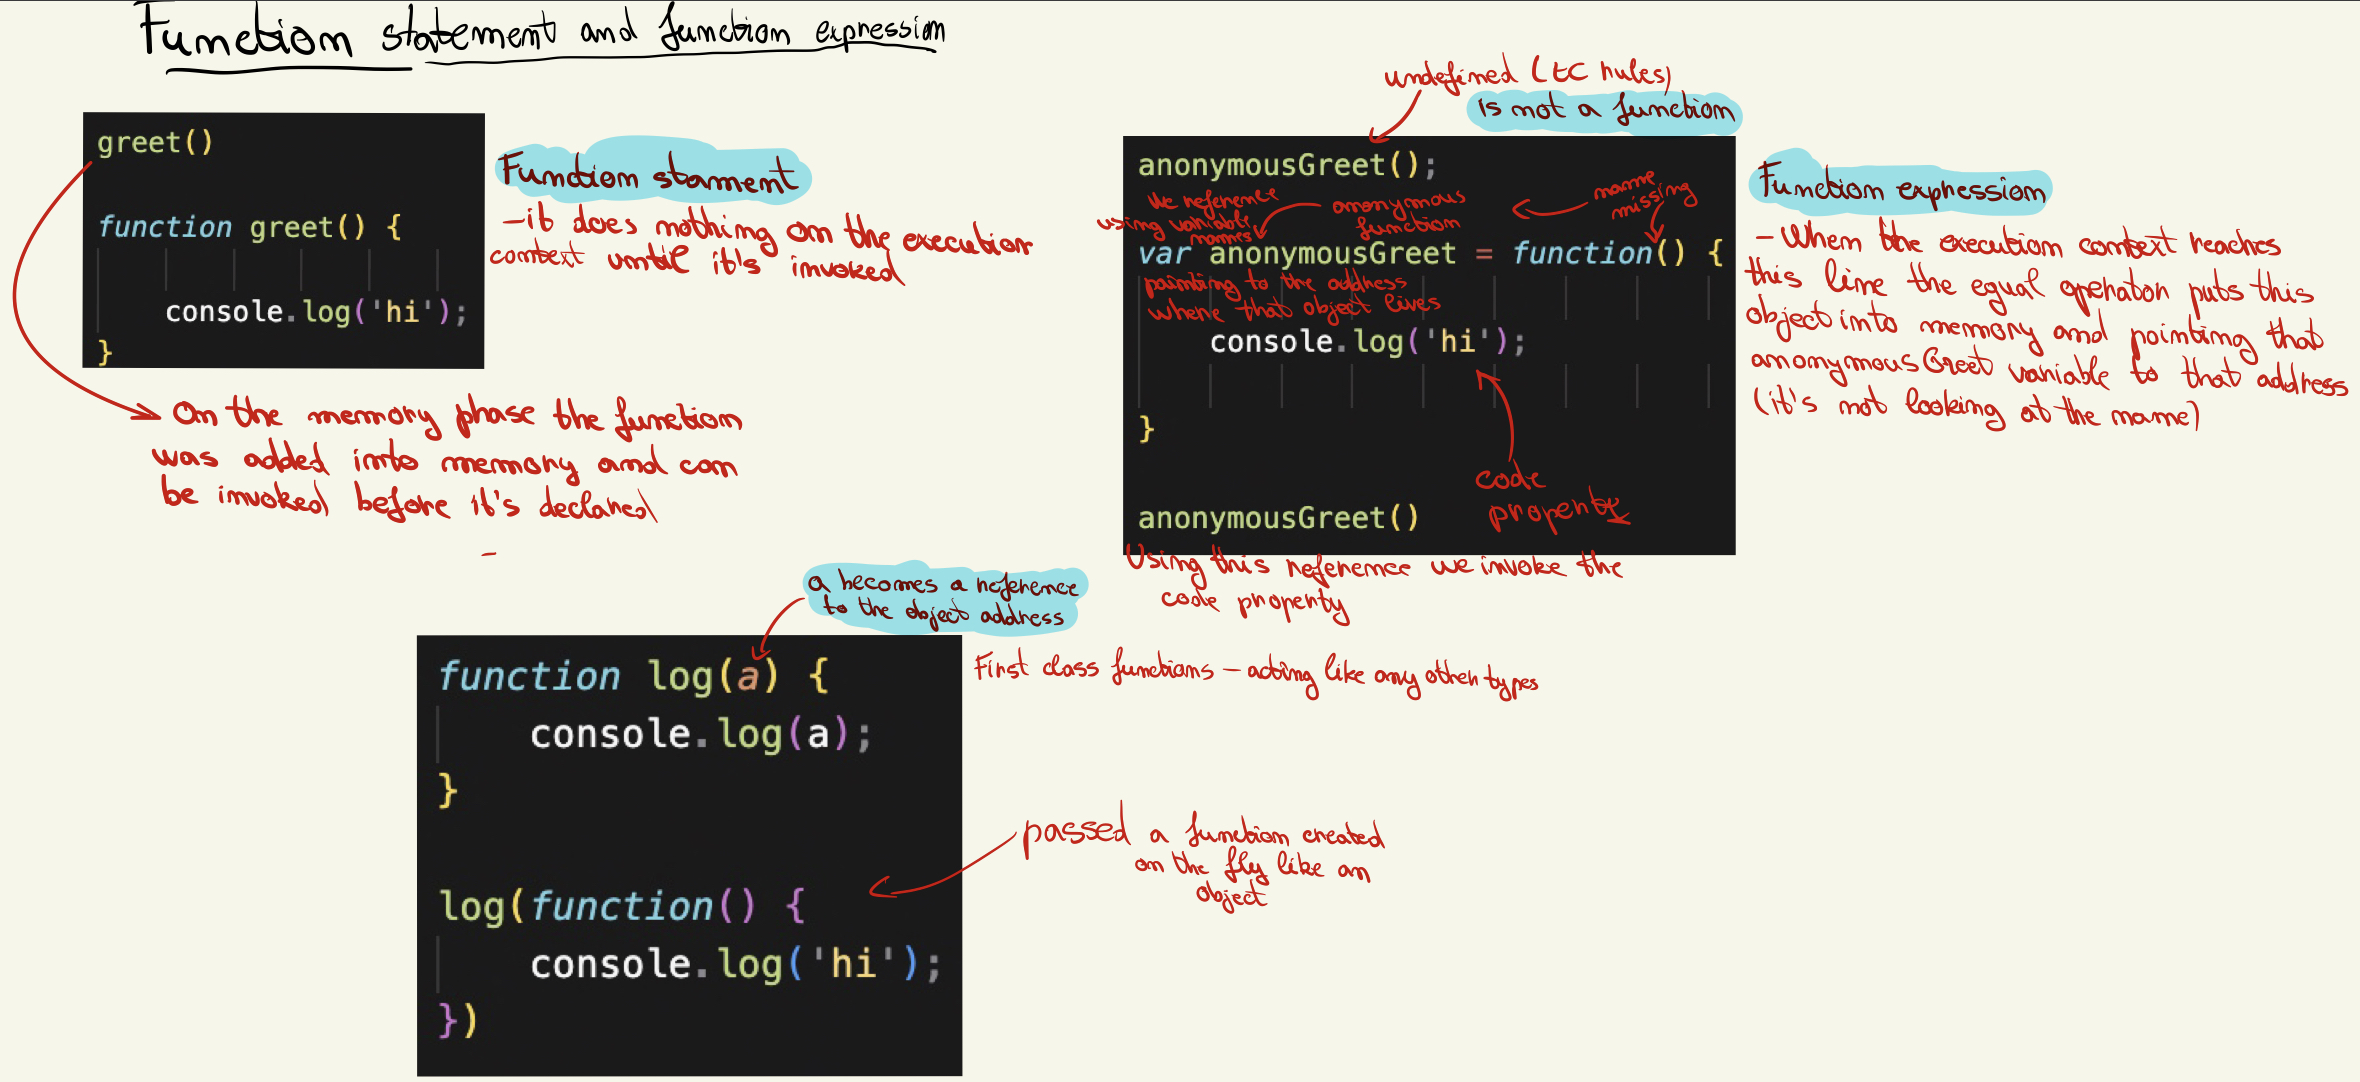 Function statement and function expression
greet()
function greet() {
console.log('hi');
}
Function stament
- it does nothing on the execution
context until it's invoked
On the memory phase the function
was added into memory and can
be invoked before it's declared
undefined (EC rules)
is not a function
anonymousGreet();
We reference
using variable
names
anonymous
function
name
missing
var anonymousGreet = function() {
pointing to the address
where that object lives
console.log('hi');
}
code
property
anonymousGreet()
Using this reference we invoke the
code property
Function expression
- When the execution context reaches
this line the equal operator puts this
object into memory and pointing that
anonymousGreet variable to that address
(it's not looking at the name)
a becomes a reference
to the object address
function log(a) {
console.log(a);
}
log(function() {
console.log('hi');
})
First class functions - acting like any other types
passed a function created
on the fly like an
object